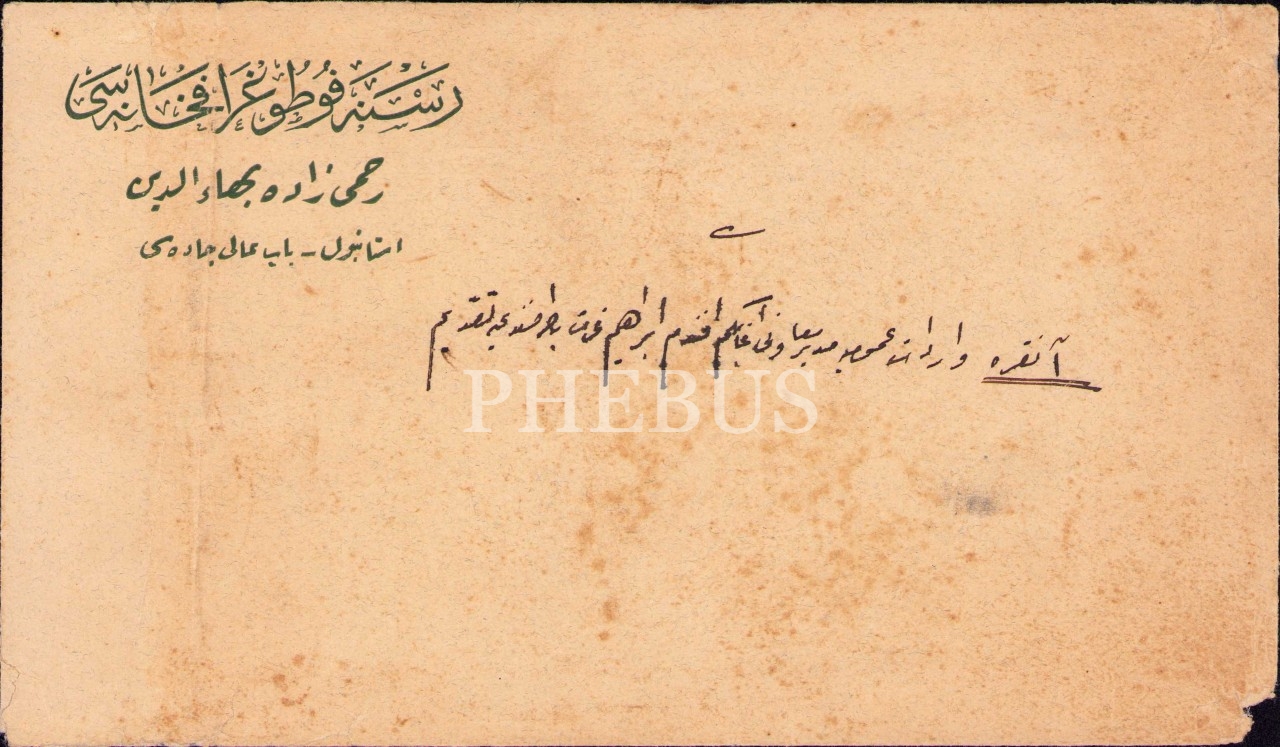 رسنه فوطوغرافخانه‌سی
رحمی زاده بهاء الدین
استانبول - باب عالی جاده سی
آنقره واردات عمومیه مدیر معاونی افندم ابراهیم بك افندی‌یه تقدیم
PHEBUS